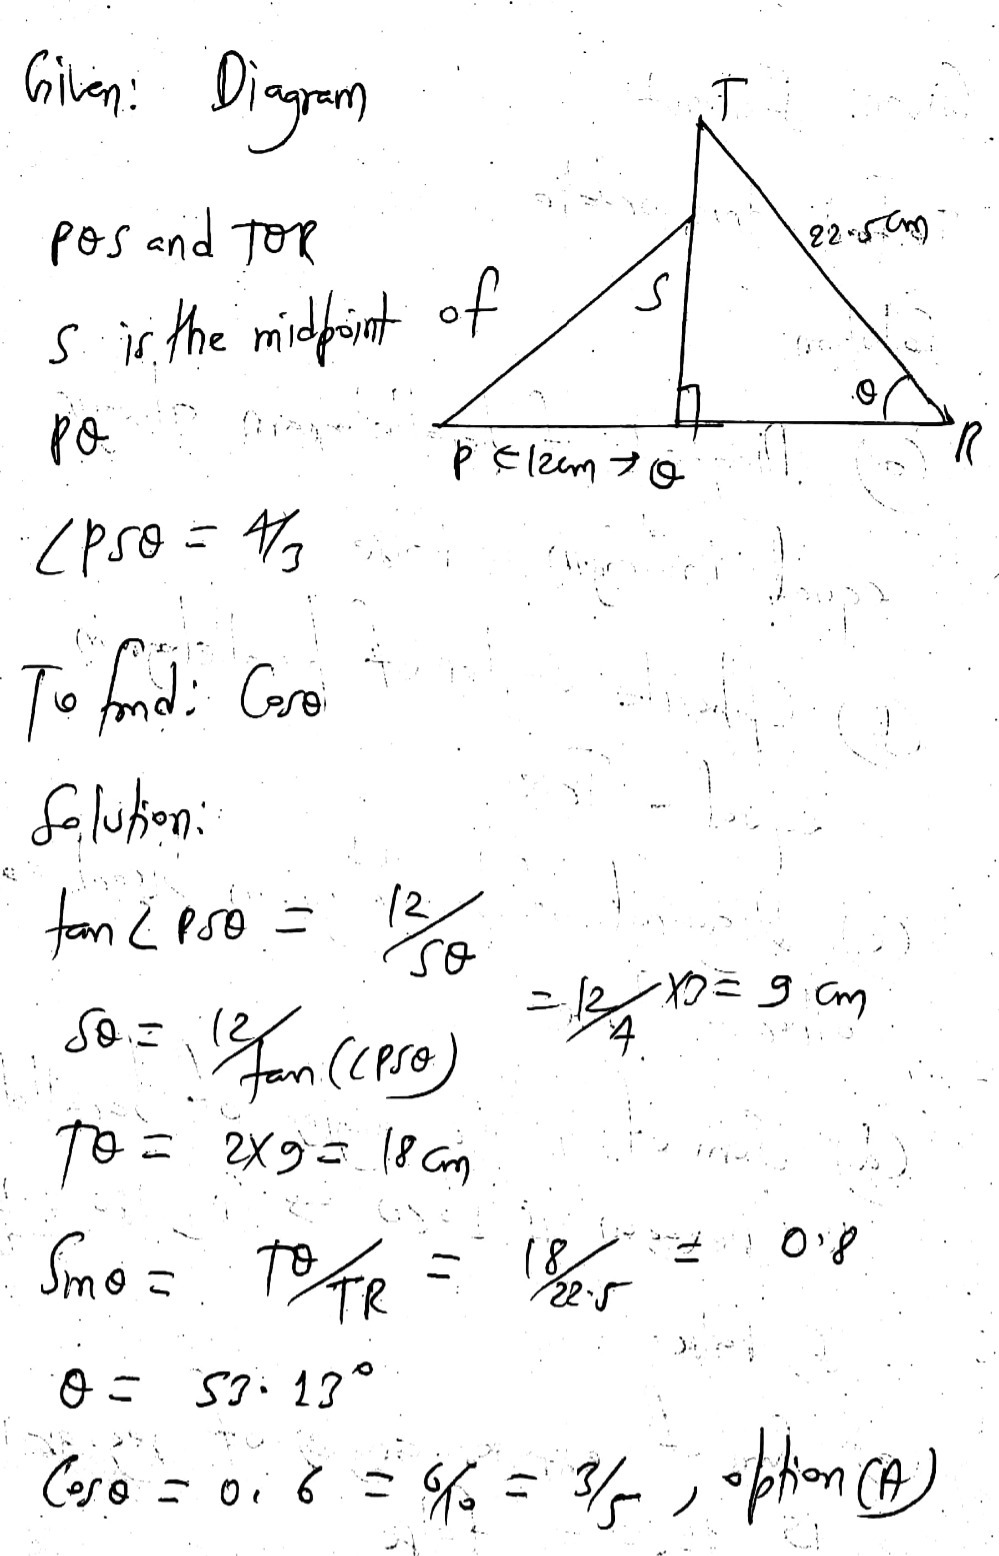 Given: Diagram
T
22.5 cm
PQS and TQR
S is the midpoint of
S
θ
PQ
P ← 12cm → Q
R
∠PSQ = 4/3
To find: Cosθ
Solution:
tan ∠ PSQ = 12/SQ
SQ = 12/tan(∠PSQ) = 12/4 ×3 = 9 cm
TQ = 2×9 = 18 cm
Sinθ = TQ/TR = 18/22.5 = 0.8
θ = 53.13°
Cosθ = 0.6 = 6/10 = 3/5, option (A)